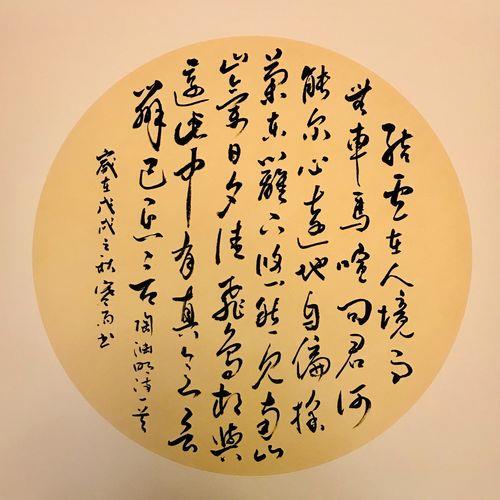 結廬在人境而
無車馬喧問君何
能尔心遠地自偏採
菊東籬下悠然見南山
山氣日夕佳飛鳥相與
還此中有真意欲
辨已忘言陶渊明诗一首
歲在戊戌之秋书